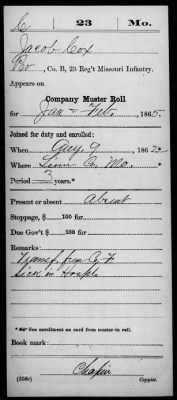 C 23 Mo.
Jacob Cox
Pv , Co. B, 23 Reg't Missouri Infantry.
Appears on
Company Muster Roll
for Jan & Feb, 1865.
Joined for duty and enrolled:
When Aug 9, 1862
Where Linn Co, Mo.
Period 3 years.*
Present or absent Absent
Stoppage, $ 100 for
Due Gov't $ 100 for
Remarks:
Transf. from Co. F
Sick in Hospl.
* See enrollment on card from muster-in roll.
Book mark:
Chapin
(358c) Copyist.